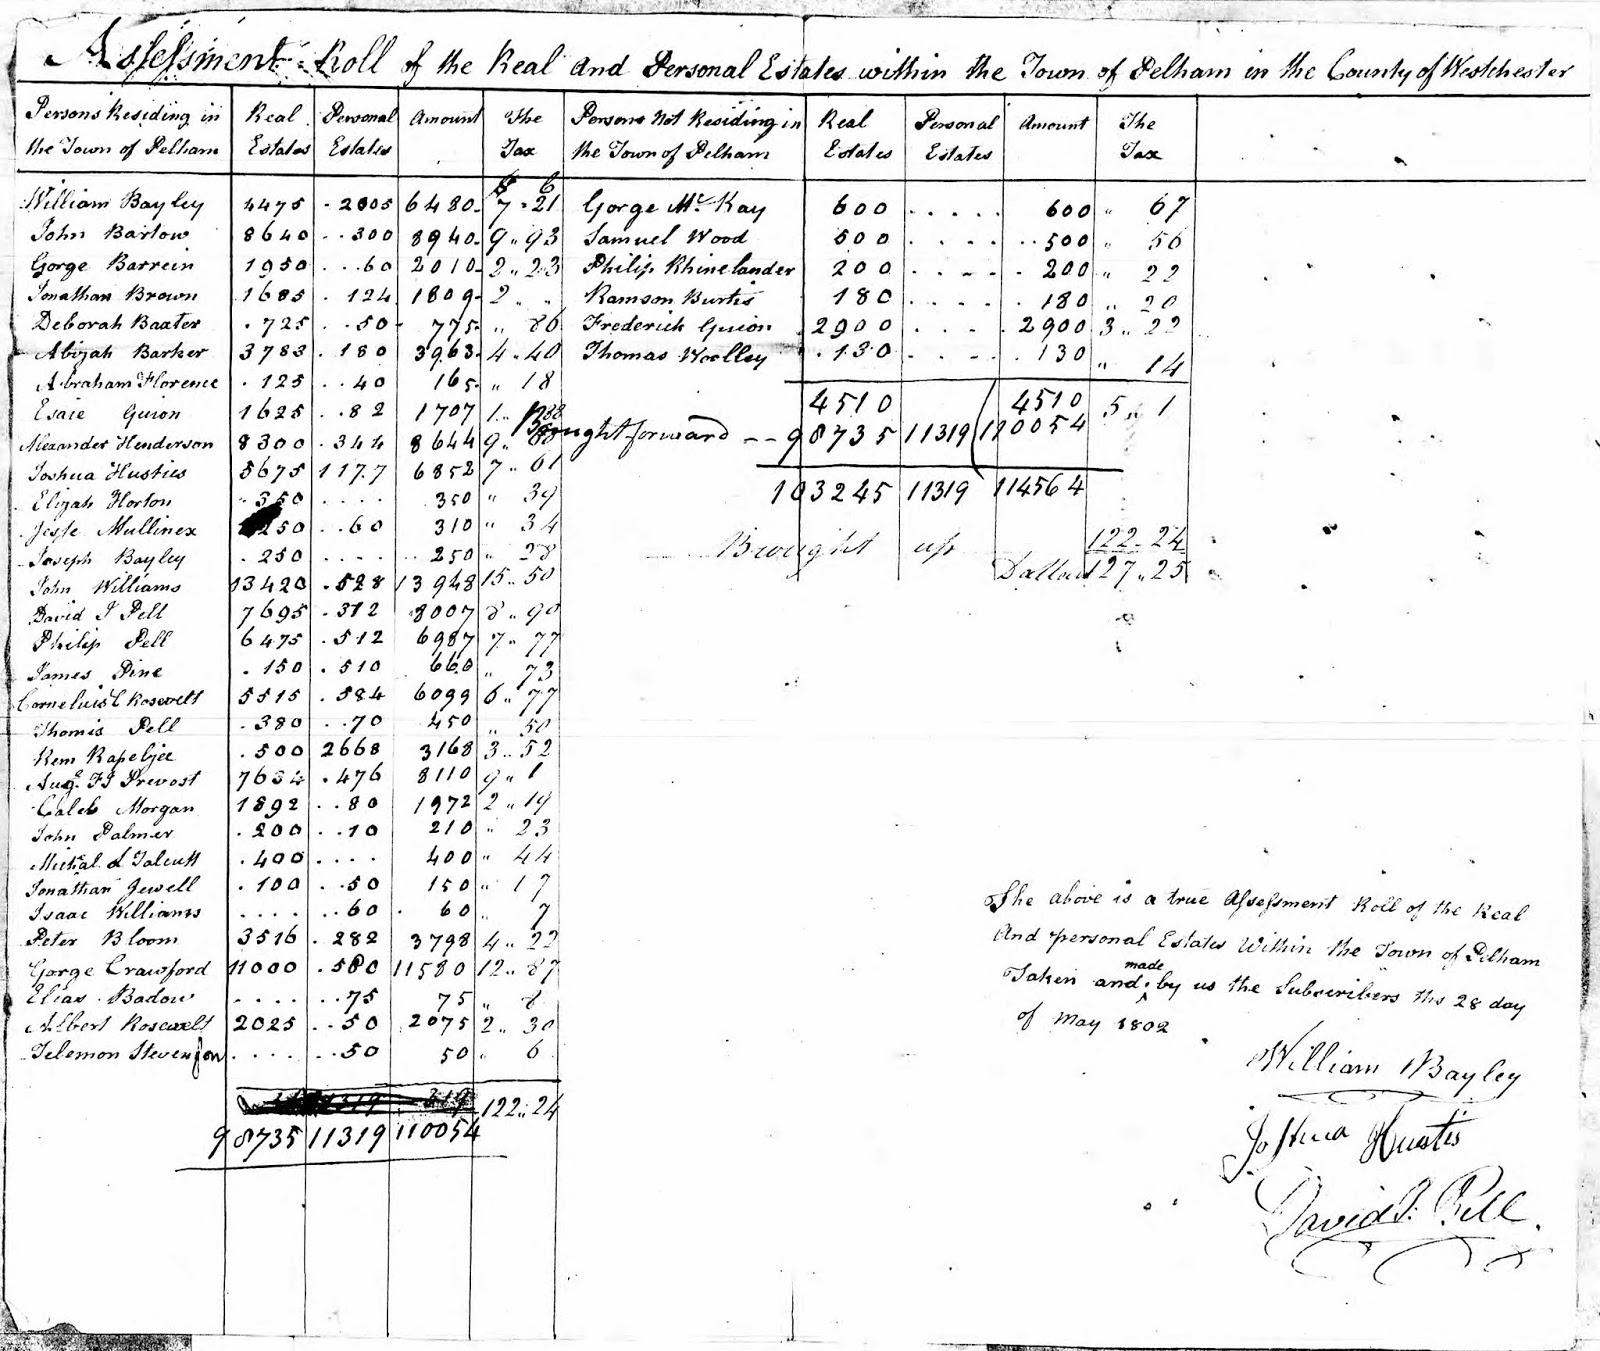 Assessment Roll of the Real and Personal Estates within the Town of Pelham in the County of Westchester
Persons Residing in the Town of Pelham | Real Estates | Personal Estates | Amount | The Tax
$ C
William Bayley 4475 . 2005 6480 7 . 21
John Bartow 8640 . . 300 8940 9 .. 93
Gorge Barrein 1950 . . . 60 2010 2 .. 23
Jonathan Brown 1685 . 124 1809 2 .. ..
Deborah Baxter . 725 . . 50 775 .. 86
Abijah Barker 3783 . 180 3963 4 .. 40
Abraham Florence . 125 . . 40 165 .. 18
Esaie Guion 1625 . . 82 1707 1 ..
Alexander Henderson 8300 . 344 8644 9 ..
Joshua Husties 5675 1177 6852 7 .. 61
Elijah Horton 350 . . . . 350 .. 39
Jesse Mullinex 250 . . 60 310 .. 34
Joseph Bayley . 250 . . . . 250 .. 28
John Williams 13420 . 528 13948 15 .. 50
David J Pell 7695 . 312 8007 8 .. 90
Philip Pell 6475 . 512 6987 7 .. 77
James Pine . 150 . 510 660 .. 73
Cornelius C Rosevelt 5515 . 584 6099 6 .. 77
Thomis Pell . 380 . . 70 450 .. 50
Rem Rapeljee . 500 2668 3168 3 .. 52
Augs. FJ Prevost 7634 . 476 8110 9 .. 1
Caleb Morgan 1892 . . 80 1972 2 .. 19
John Palmer . 200 . . 10 210 .. 23
Talcutt . 400 . . . . 400 .. 44
Jonathan Jewell . 100 . . 50 150 .. 17
Isaac Williams . . . . . . 60 . 60 .. 7
Peter Bloom 3516 . 282 3798 4 .. 22
Gorge Crawford 11000 . 580 11580 12 .. 87
Elias Badow . . . . . . 75 75 .. 8
Albert Rosevelt 2025 . . 50 2075 2 .. 30
Telemon Stevenson . . . . . . 50 50 .. 6
122 .. 24
98735 11319 110054
Persons Not Residing in the Town of Pelham | Real Estates | Personal Estates | Amount | The Tax
Gorge Mc Kay 600 . . . . . 600 .. 67
Samuel Wood 500 . . . . . . 500 .. 56
Philip Rhinelander 200 . . . . . 200 .. 22
Ramson Burtis 180 . . . . . 180 .. 20
Frederick Guion 2900 . . . . 2900 3 .. 22
Thomas Woolley . 130 . . . . . 130 .. 14
4510 4510 5 .. 1
Brought forward -- 98735 11319 110054
103245 11319 114564
Brought up 122 .. 24
Dollars 127 .. 25
The above is a true Assessment Roll of the Real
And personal Estates Within the Town of Pelham
Taken and made by us the Subscribers this 28 day
of May 1802
William Bayley
Joshua Hustis
David J. Pell.